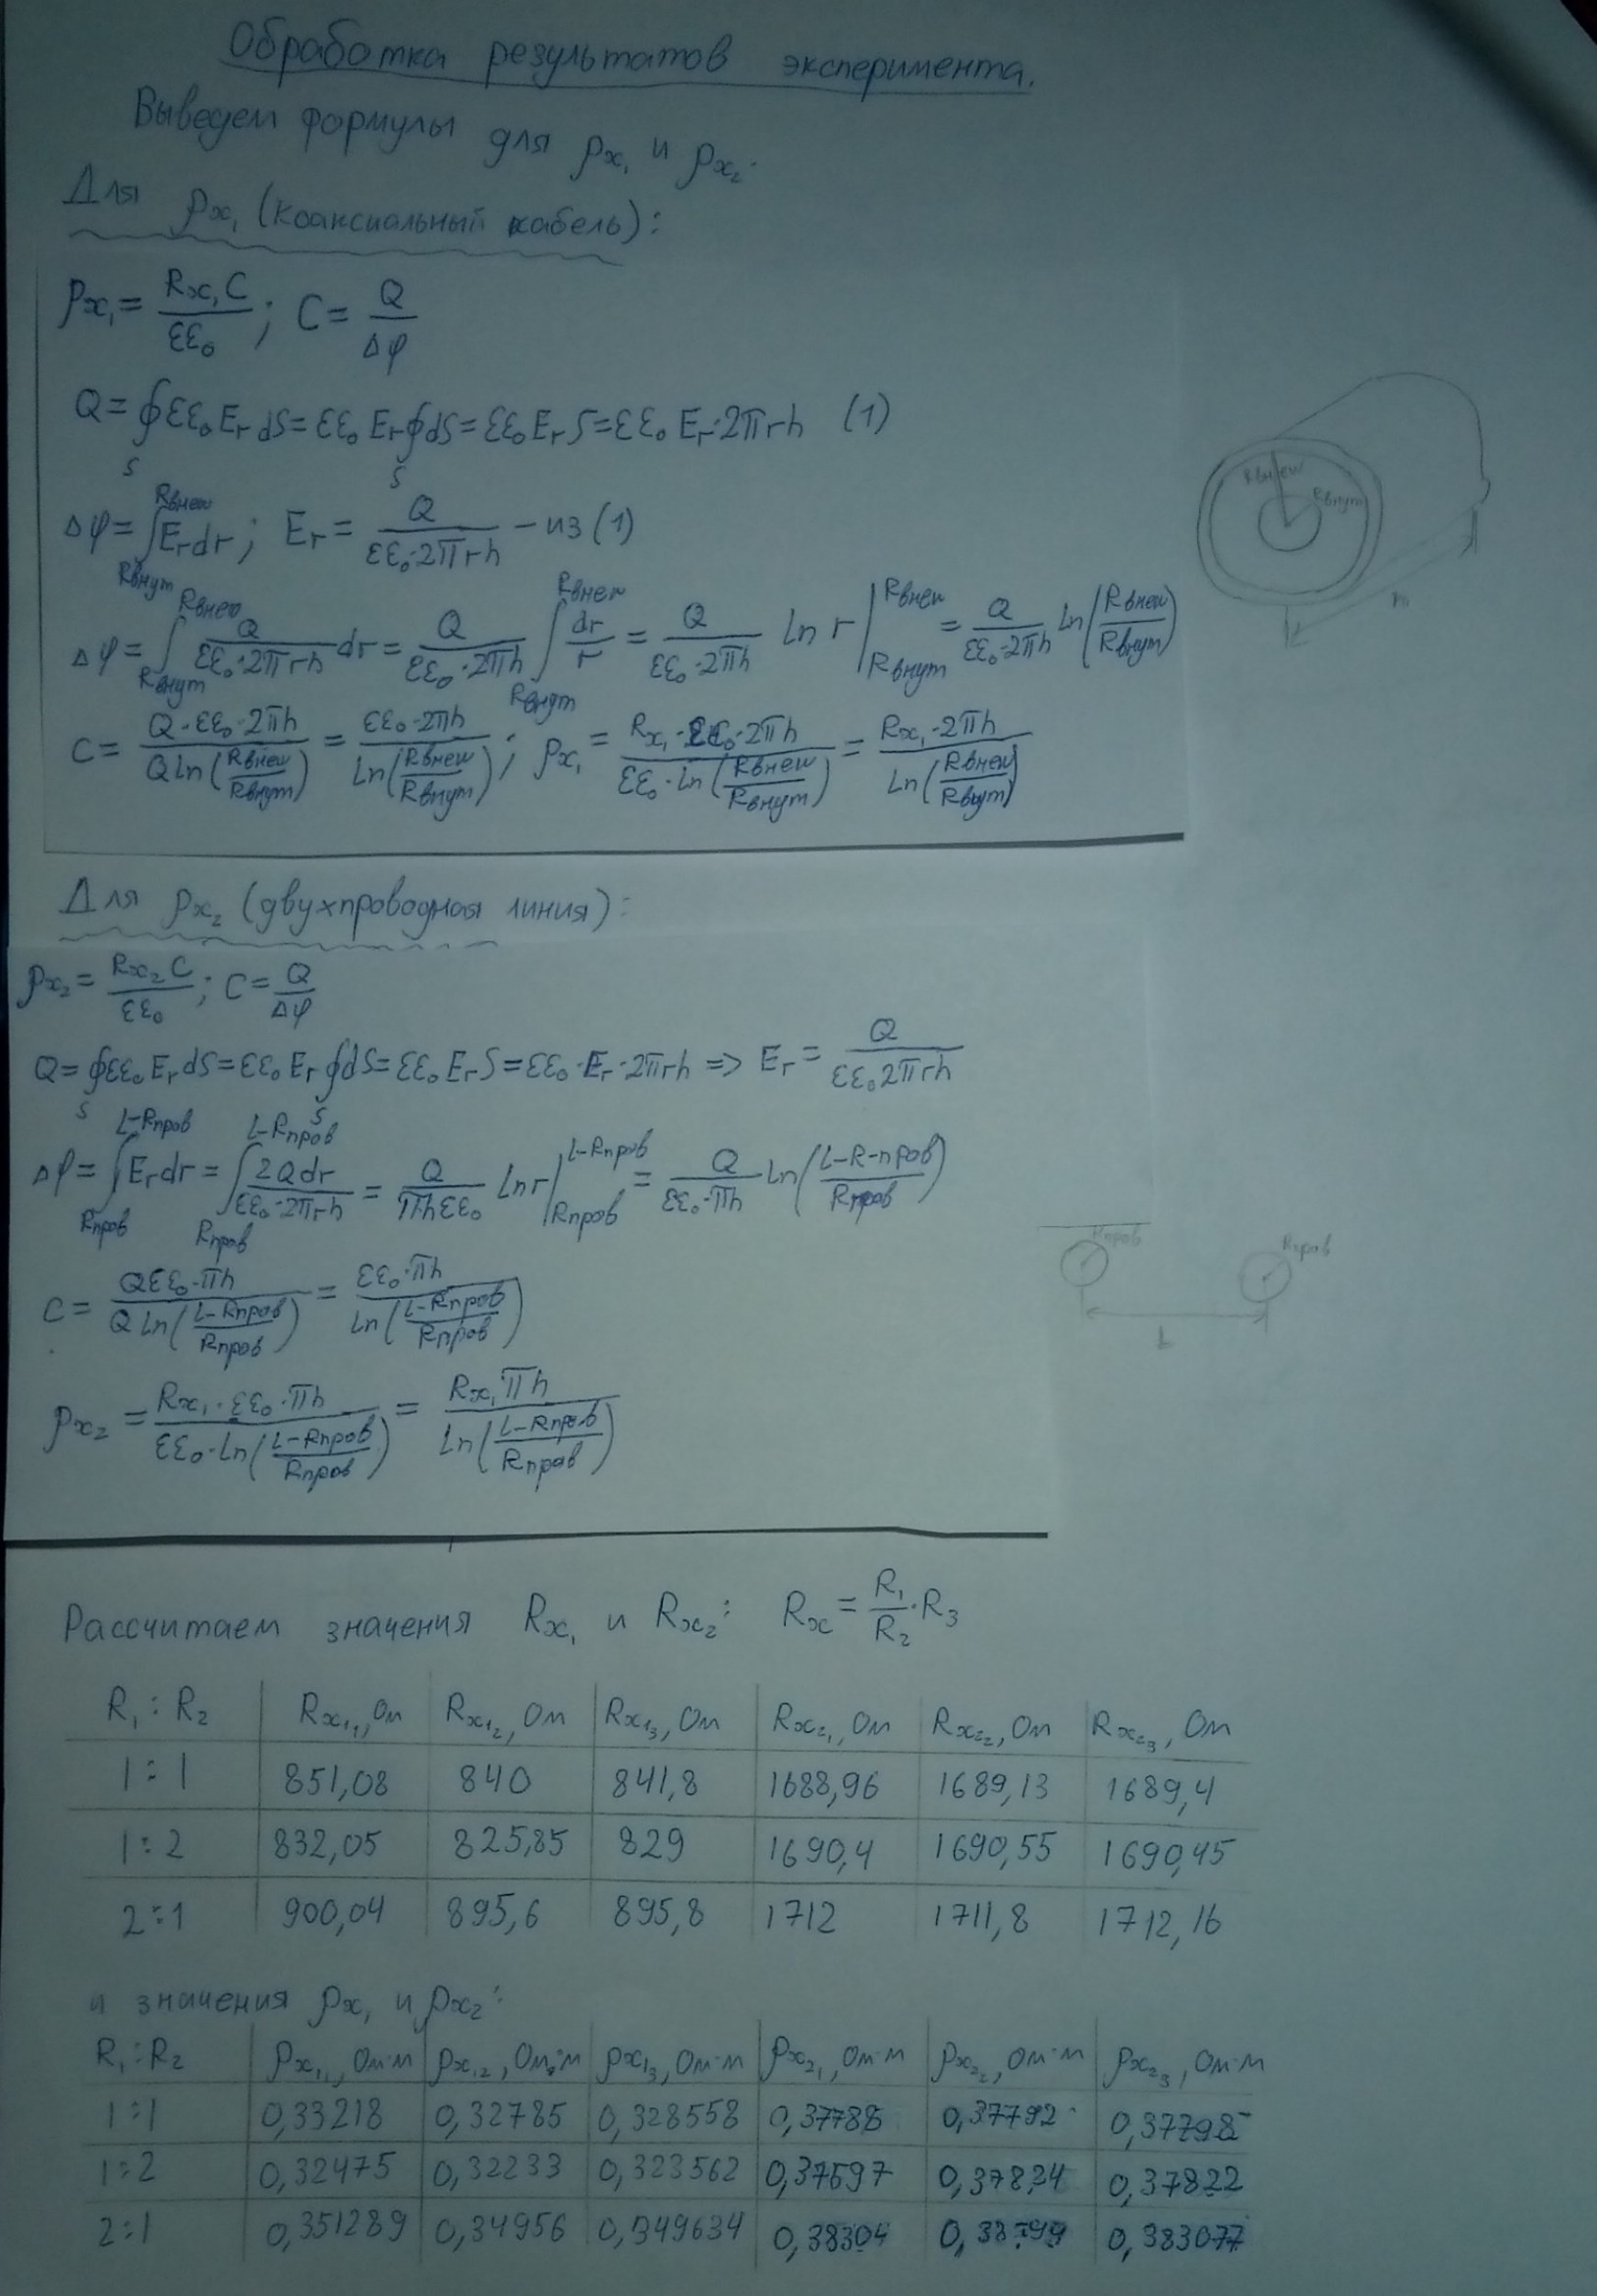 Обработка результатов эксперимента.
Выведем формулы для ρx₁ и ρx₂.
Для ρx₁ (коаксиальный кабель):
ρx₁ = Rx₁C / εε₀ ; C = Q / Δφ
Q = ∮_S εε₀ E_r dS = εε₀ E_r ∮_S dS = εε₀ E_r S = εε₀ E_r · 2πrh (1)
Δφ = ∫_{Rвнут}^{Rвнеш} E_r dr ; E_r = Q / (εε₀·2πrh) – из (1)
Δφ = ∫_{Rвнут}^{Rвнеш} Q / (εε₀·2πrh) dr = Q / (εε₀·2πh) ∫_{Rвнут}^{Rвнеш} dr / r = Q / (εε₀·2πh) ln r |_{Rвнут}^{Rвнеш} = Q / (εε₀·2πh) ln(Rвнеш / Rвнут)
C = Q·εε₀·2πh / (Q ln(Rвнеш / Rвнут)) = εε₀·2πh / ln(Rвнеш / Rвнут) ; ρx₁ = Rx₁·εε₀·2πh / (εε₀·ln(Rвнеш / Rвнут)) = Rx₁·2πh / ln(Rвнеш / Rвнут)
Rвнеш
Rвнут
h
Для ρx₂ (двухпроводная линия):
ρx₂ = Rx₂C / εε₀ ; C = Q / Δφ
Q = ∮_S εε₀ E_r dS = εε₀ E_r ∮_S dS = εε₀ E_r S = εε₀·E_r·2πrh => E_r = Q / (εε₀2πrh)
Δφ = ∫_{Rпров}^{L-Rпров} E_r dr = ∫_{Rпров}^{L-Rпров} 2Qdr / (εε₀·2πrh) = Q / (πhεε₀) ln r |_{Rпров}^{L-Rпров} = Q / (εε₀·πh) ln((L-R-пров) / Rпров)
C = Qεε₀·πh / (Q ln((L-Rпров) / Rпров)) = εε₀·πh / ln((L-Rпров) / Rпров)
ρx₂ = Rx₁·εε₀·πh / (εε₀·ln((L-Rпров) / Rпров)) = Rx₁πh / ln((L-Rпров) / Rпров)
Rпров Rпров
L
Рассчитаем значения Rx₁ и Rx₂: Rx = R₁ / R₂ · R₃
R₁ : R₂ Rx₁₁, Ом Rx₁₂, Ом Rx₁₃, Ом Rx₂₁, Ом Rx₂₂, Ом Rx₂₃, Ом
1 : 1 851,08 840 841,8 1688,96 1689,13 1689,4
1 : 2 832,05 825,85 829 1690,4 1690,55 1690,45
2 : 1 900,04 895,6 895,8 1712 1711,8 1712,16
и значения ρx₁ и ρx₂:
R₁ : R₂ ρx₁₁, Ом·м ρx₁₂, Ом·м ρx₁₃, Ом·м ρx₂₁, Ом·м ρx₂₂, Ом·м ρx₂₃, Ом·м
1 : 1 0,33218 0,32785 0,328558 0,37788 0,37792 0,37798
1 : 2 0,32475 0,32233 0,323562 0,37822
2 : 1 0,351289 0,34956 0,349634 0,38304 0,383077